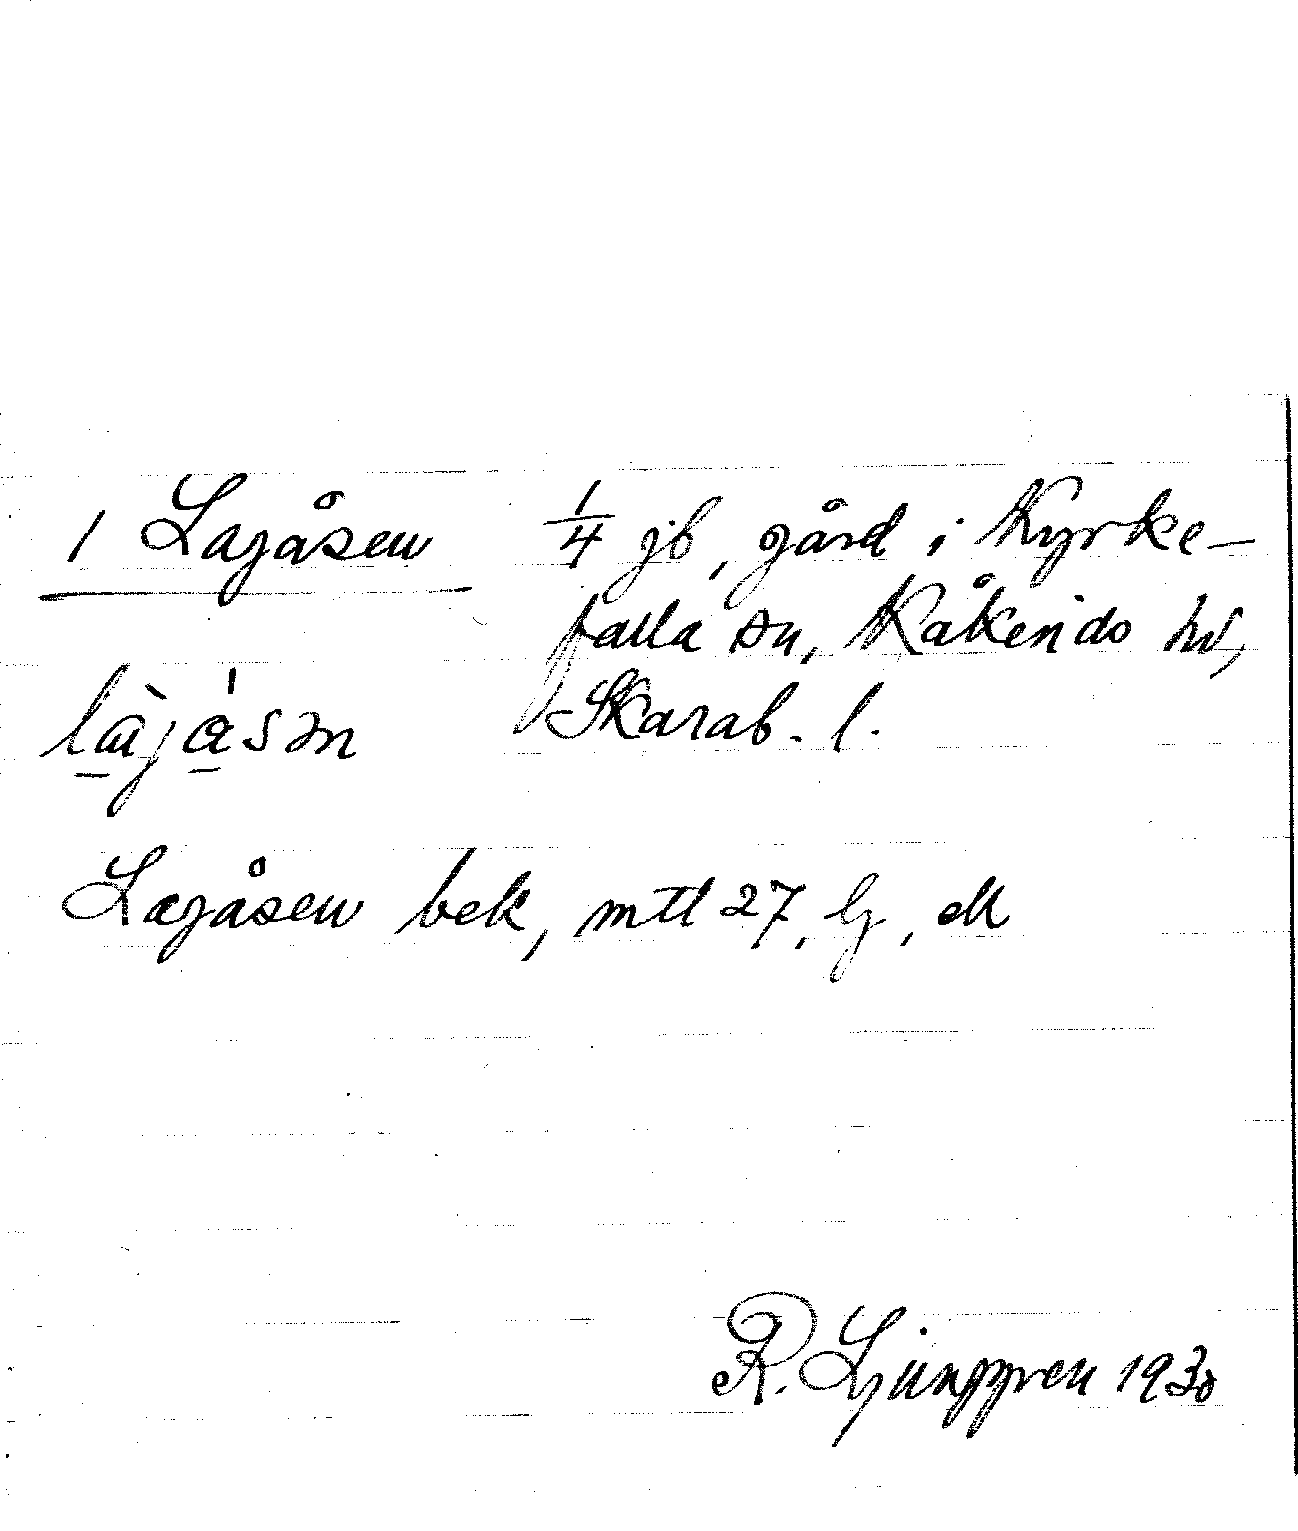 1 Lagåsen 1/4 jb, gård i Kyrke-
falla sn, Kåkinds hd,
Skarab. l.
Lagåsen bek, mtl 27, lj,
R. Ljunggren 1930